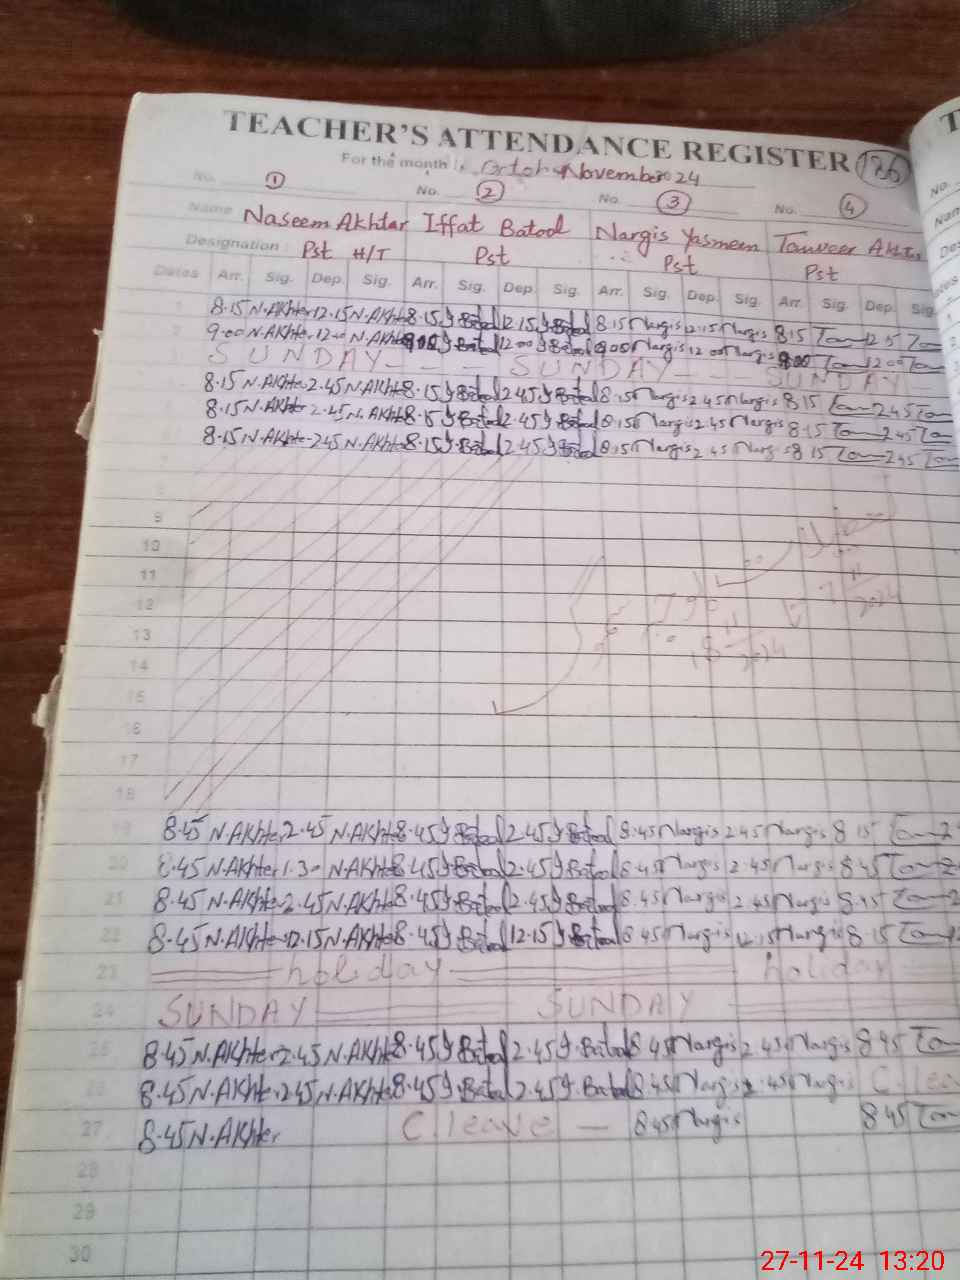 TEACHER'S ATTENDANCE REGISTER 186
For the month November 2024
No. 1 No. 2 No. 3 No. 4
Name Naseem Akhtar Iffat Batool Nargis Yasmeen Tanveer
Designation : Pst H/T Pst Pst Pst
Dates Arr. Sig. Dep. Sig. Arr. Sig. Dep. Sig. Arr. Sig. Dep. Sig. Arr. Sig. Dep. Sig.
1 8.15 N.Akhter 12.15 N.Akhter 8.15 I.Batool 12.15 I.Batool 8.15 Nargis 12.15 Nargis 8.15
2 9.00 N.Akhter 12.00 N.Akhter 9.00 I.Batool 12.00 I.Batool 9.00 Nargis 12.00 Nargis 9.00 12.00
SUNDAY - - - SUNDAY - - SUNDAY
8.15 N.Akhter 2.45 N.Akhter 8.15 I.Batool 2.45 I.Batool 8.15 Nargis 2.45 Nargis 8.15 2.45
8.15 N.Akhter 2.45 N.Akhter 8.15 I.Batool 2.45 I.Batool 8.15 Nargis 2.45 Nargis 8.15 2.45
8.15 N.Akhter 2.45 N.Akhter 8.15 I.Batool 2.45 I.Batool 8.15 Nargis 2.45 Nargis 8.15 2.45
8
9
10
11
12
13
14
15
16
17
18
19 8.45 N.Akhter 2.45 N.Akhter 8.45 I.Batool 2.45 I.Batool 8.45 Nargis 2.45 Nargis 8.15
20 8.45 N.Akhter 1.30 N.Akhter 8.45 I.Batool 2.45 I.Batool 8.45 Nargis 2.45 Nargis 8.45
21 8.45 N.Akhter 2.45 N.Akhter 8.45 I.Batool 2.45 I.Batool 8.45 Nargis 2.45 Nargis 8.45
22 8.45 N.Akhter 12.15 N.Akhter 8.45 I.Batool 12.15 I.Batool 8.45 Nargis 12.15 Nargis 8.15
23 holiday holiday
24 SUNDAY SUNDAY
25 8.45 N.Akhter 2.45 N.Akhter 8.45 I.Batool 2.45 I.Batool 8.45 Nargis 2.45 Nargis 8.45
26 8.45 N.Akhter 2.45 N.Akhter 8.45 I.Batool 2.45 I.Batool 8.45 Nargis 2.45 Nargis C.lea
27 8.45 N.Akhter C.leave — 8.45 Nargis 8.45
28
29
30
27-11-24 13:20